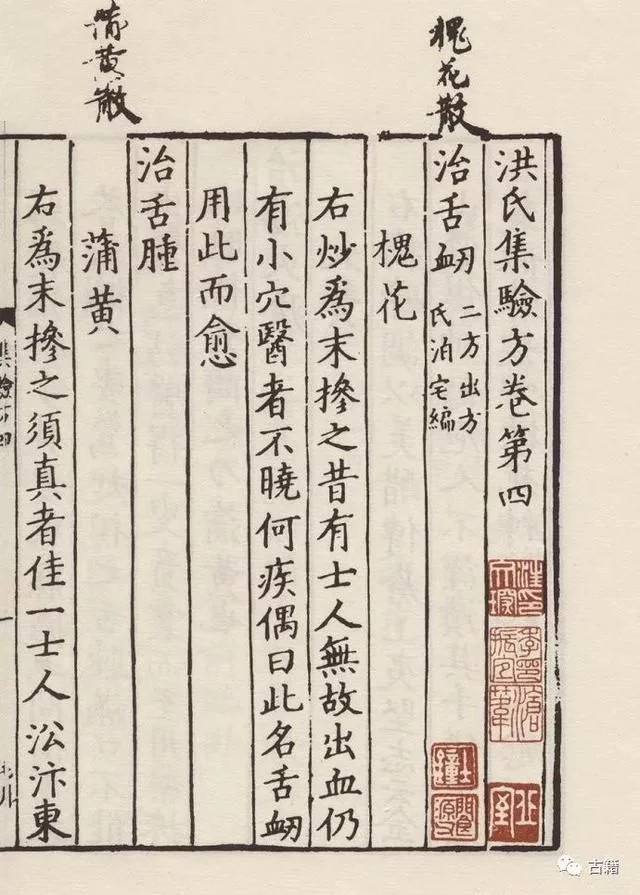 槐花散
洪氏集驗方卷第四
治舌衂
二方出方
氏泊宅編
槐花
右炒爲末摻之昔有士人無故出血仍
有小穴醫者不曉何疾偶曰此名舌衂
用此而愈
治舌腫
蒲黄散
蒲黄
右爲末摻之須真者佳一士人㳂汴東
集驗方四
汪印文琛
士鐘
古籍